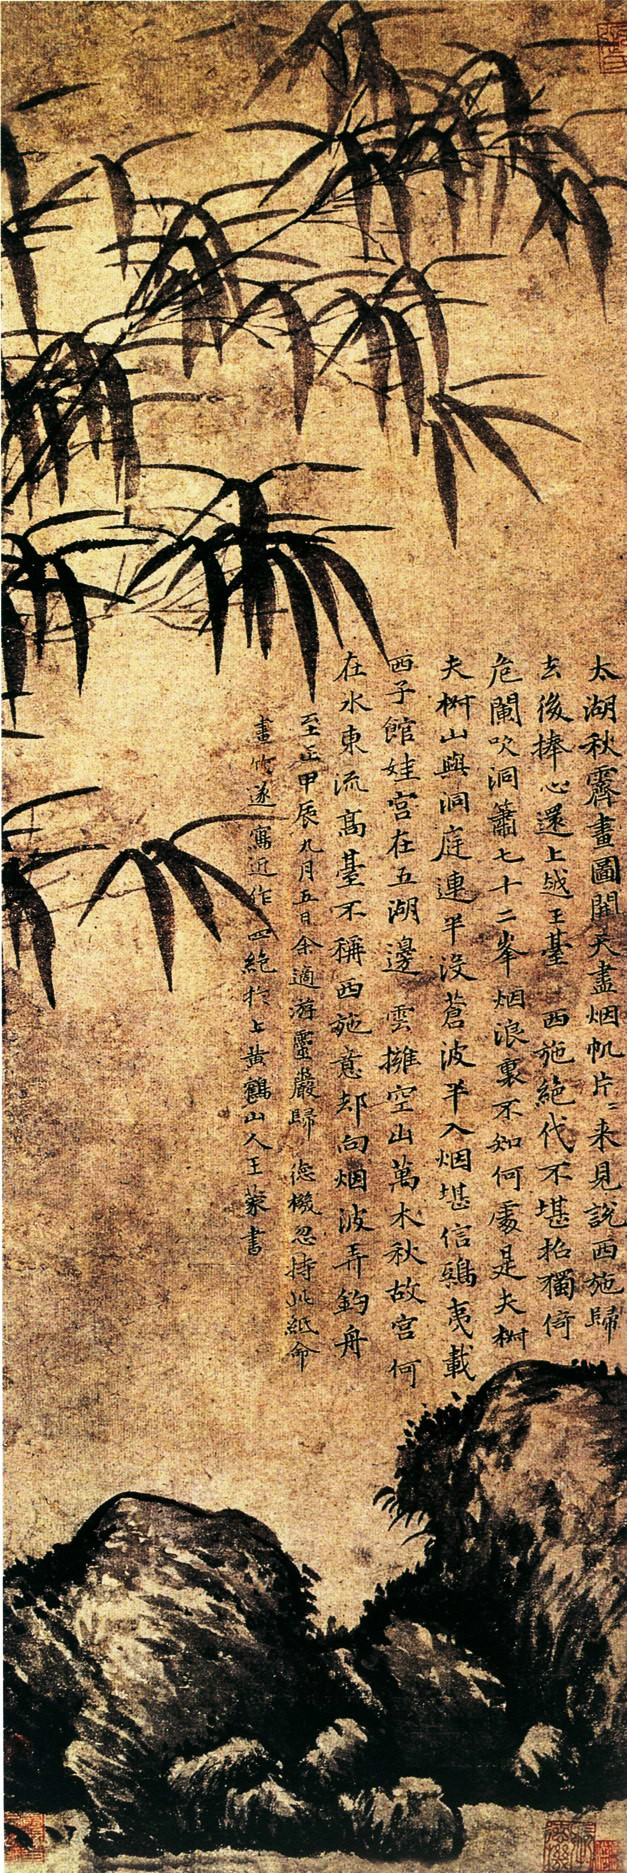 太湖秋霽畫圖開天盡烟帆片〻来見說西施歸
去後捧心還上越王臺 西施絶代不堪招獨倚
危闌吹洞簫七十二峯烟浪裏不知何處是夫椒
夫椒山與洞庭連半没蒼波半入烟堪信鴟夷載
西子館娃宫在五湖邊 雲擁空山萬木秋故宫何
在水東流高臺不稱西施意却向烟波弄釣舟
至正甲辰九月五日余適游靈巖歸 德機忽持此紙命
畫竹遂寫近作四絶扵上黄鶴山人王蒙書